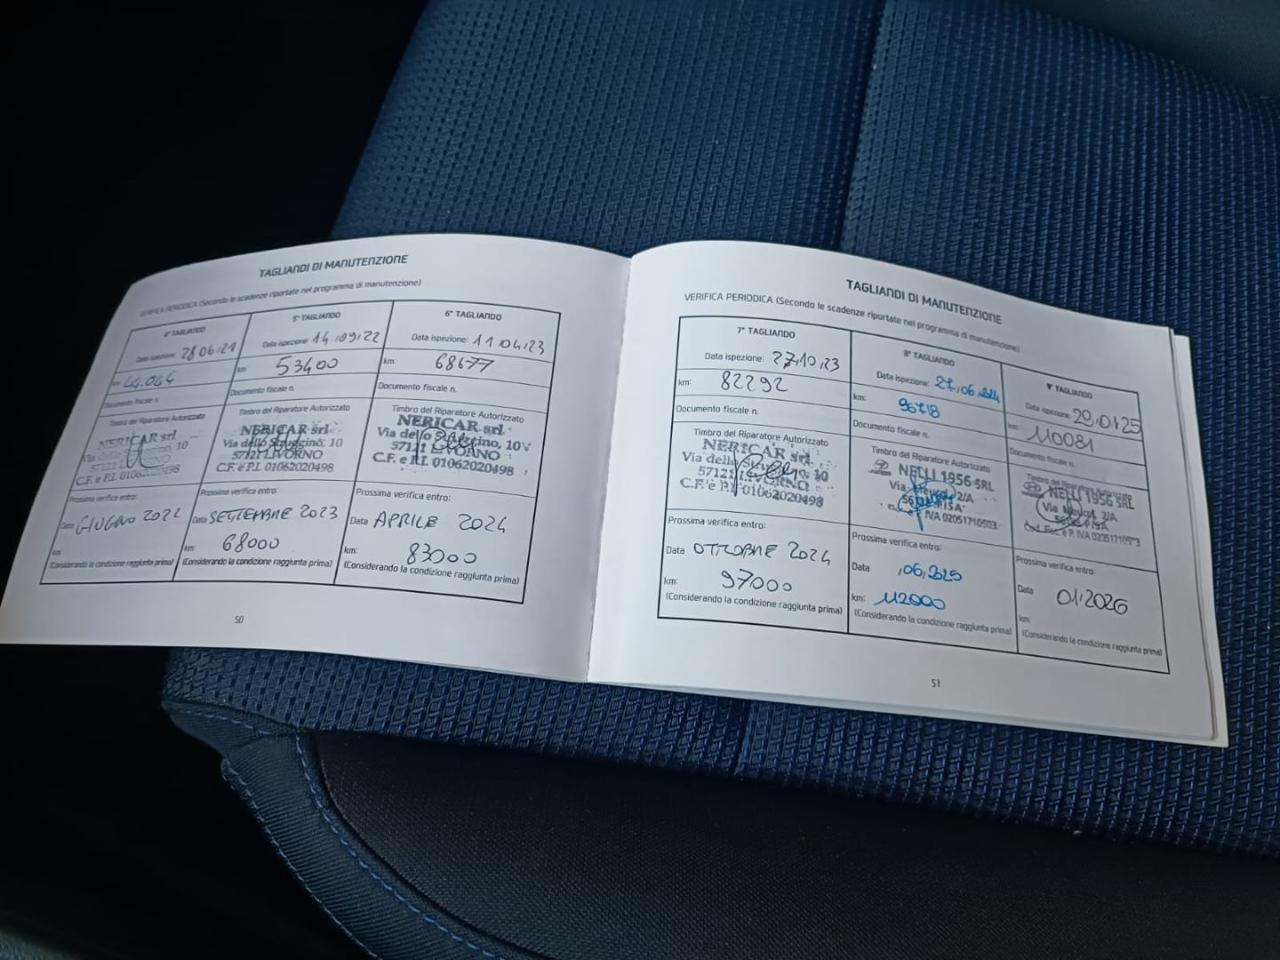 TAGLIANDI DI MANUTENZIONE
VERIFICA PERIODICA (Secondo le scadenze riportate nel programma di manutenzione)
4° TAGLIANDO
Data ispezione: 28 06 21
km: 44.044
Documento fiscale n.
Timbro del Riparatore Autorizzato
NERICAR srl
Via dello 10
57121 LIVORNO
C.F. e P.I. 01062020498
Prossima verifica entro:
Data GIUGNO 2022
km:
(Considerando la condizione raggiunta prima)
5° TAGLIANDO
Data ispezione: 14 09 22
km: 53400
Documento fiscale n.
Timbro del Riparatore Autorizzato
NERICAR srl
Via dello Struggino, 10
57121 LIVORNO
C.F. e P.I. 01062020498
Prossima verifica entro:
Data SETTEMBRE 2023
km: 68000
(Considerando la condizione raggiunta prima)
6° TAGLIANDO
Data ispezione: 11 04 23
km: 68677
Documento fiscale n.
Timbro del Riparatore Autorizzato
NERICAR srl
Via dello Struggino, 10
57121 LIVORNO
C.F. e P.I. 01062020498
Prossima verifica entro:
Data APRILE 2024
km: 83000
(Considerando la condizione raggiunta prima)
50
TAGLIANDI DI MANUTENZIONE
VERIFICA PERIODICA (Secondo le scadenze riportate nel programma di manutenzione)
7° TAGLIANDO
Data ispezione: 27,10,23
km: 82292
Documento fiscale n.
Timbro del Riparatore Autorizzato
NERICAR srl
Via dello Struggino, 10
57121 LIVORNO
C.F. e P.I. 01062020498
Prossima verifica entro:
Data OTTOBRE 2024
km: 97000
(Considerando la condizione raggiunta prima)
8° TAGLIANDO
Data ispezione: 27,06,2024
km: 96718
Documento fiscale n.
Timbro del Riparatore Autorizzato
NELLI 1956 SRL
Via 2/A
PISA
IVA 02051710503
Prossima verifica entro:
Data ,06,2025
km: 112000
(Considerando la condizione raggiunta prima)
9° TAGLIANDO
Data ispezione: 29,01,25
km: 110081
Documento fiscale n.
Timbro del Riparatore Autorizzato
NELLI 1956 SRL
Via 2/A
PISA
Cod. Fisc. e P. IVA 02051710503
Prossima verifica entro:
Data 01/2026
km:
(Considerando la condizione raggiunta prima)
51